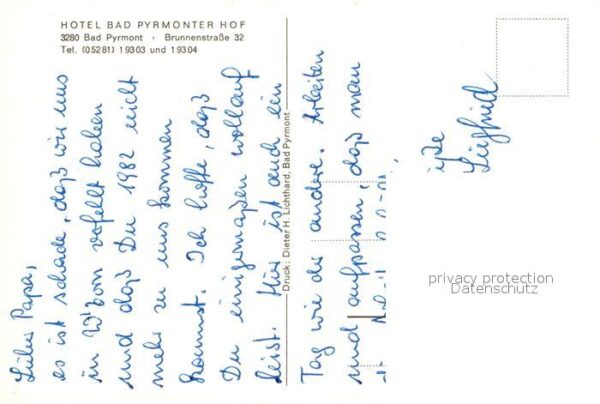 HOTEL BAD PYRMONTER HOF
3280 Bad Pyrmont · Brunnenstraße 32
Tel. (05281) 19303 und 19304
Lieber Papa,
es ist schade, daß wir uns
in W'born verfehlt haben
und daß Du 1982 nicht
mehr zu uns kommen
kannst. Ich hoffe, daß
Du einigermaßen wohlauf
bist. Hier ist auch ein
Druck: Dieter H. Lichthard, Bad Pyrmont
Tag wie der andere. Arbeiten
und aufpassen, daß man
Siegfried
privacy protection
Datenschutz